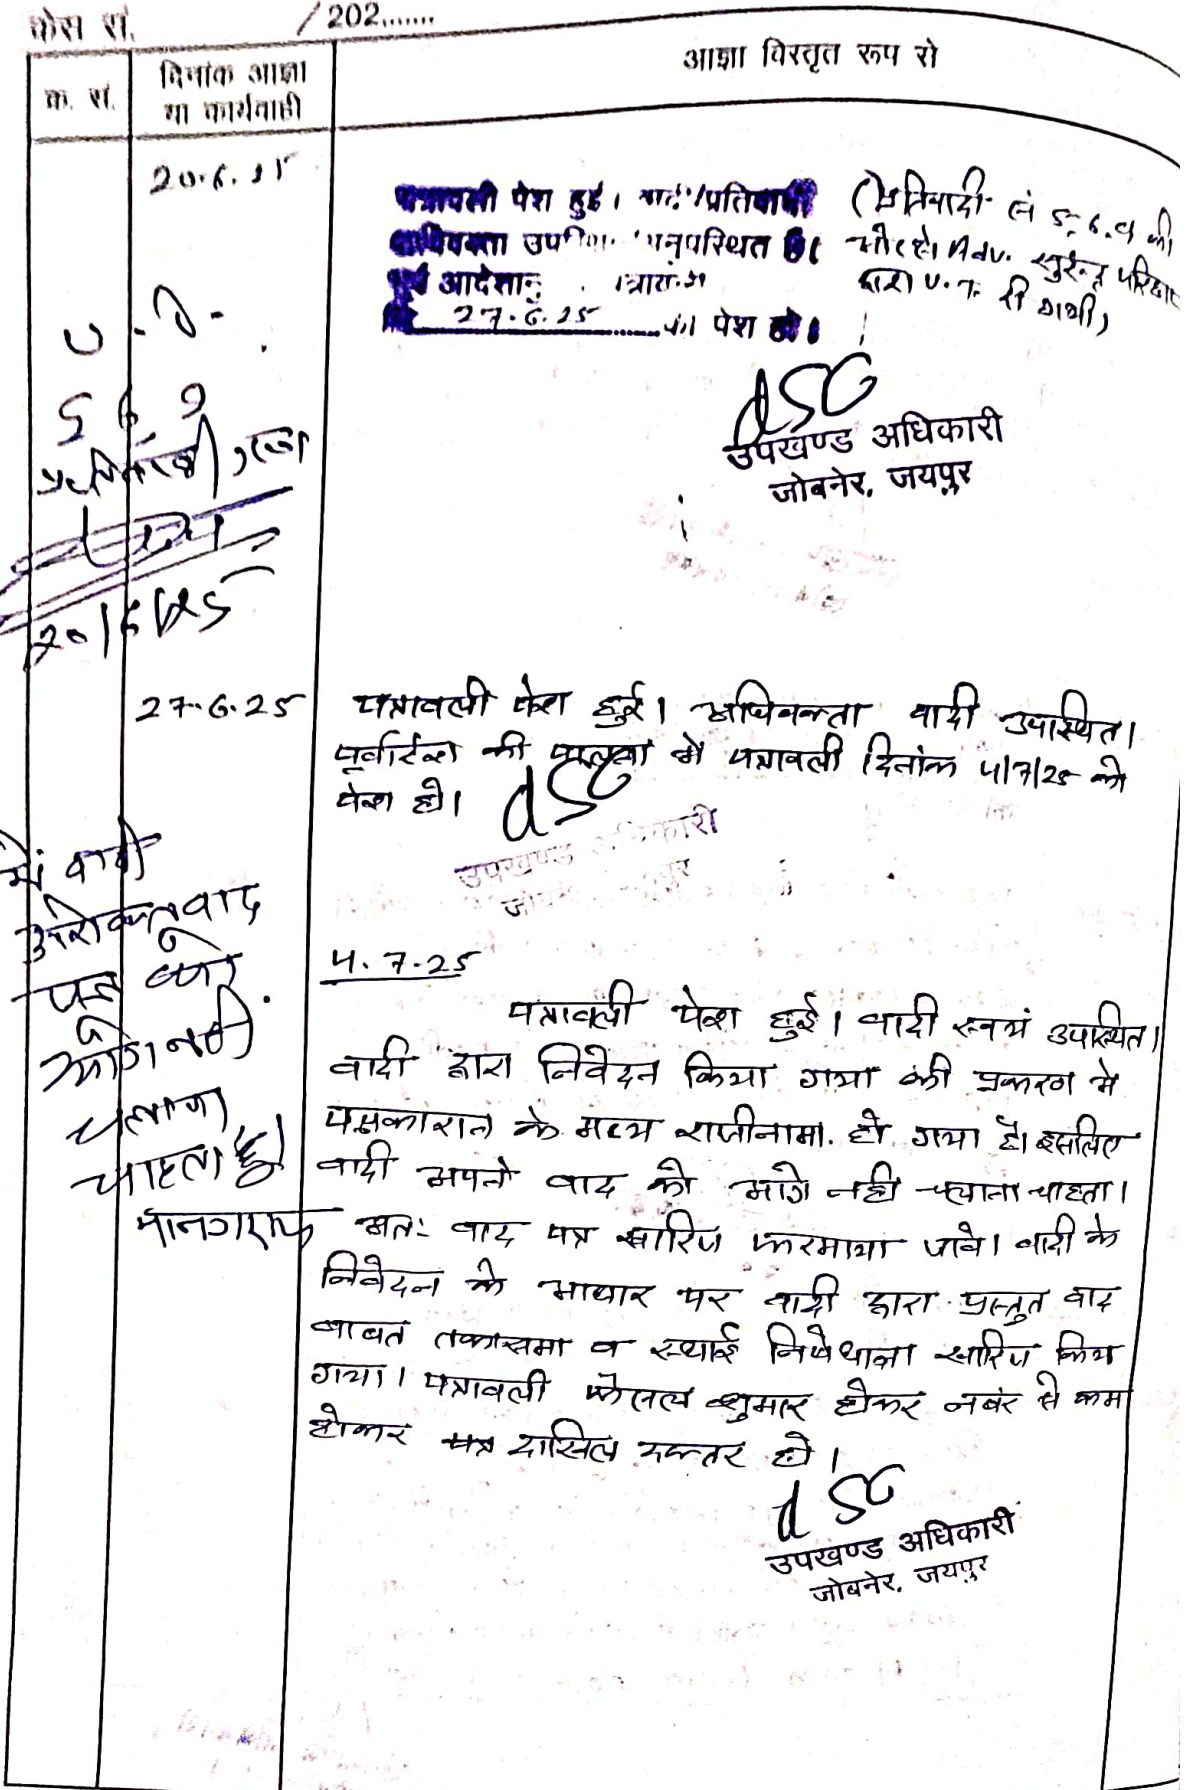 केस सं. /202.......
क्र. सं.
दिनांक आज्ञा
या कार्यवाही
आज्ञा विस्तृत रूप से
20.6.25
पत्रावली पेश हुई। वादी/प्रतिवादी
अधिवक्ता उप अनुपस्थित है।
आदेशानु
27.6.25 को पेश हो।
(प्रतिवादी सं 5, 6, 9 की
ओर से Adv. सुरेन्द्र
द्वारा U.T. दी गयी)
U.T.
5 6 9
20/6/25
dSG
उपखण्ड अधिकारी
जोबनेर, जयपुर
27.6.25
पत्रावली पेश हुई। अधिवक्ता वादी उपस्थित।
पूर्वादेश की पालना में पत्रावली दिनांक 4/7/25 को
पेश हो।
dSG
उपखण्ड अधिकारी
मैं वादी
उपरोक्त वाद
पत्र को
आगे नही
चलाना
चाहता हूँ।
4.7.25
पत्रावली पेश हुई। वादी स्वयं उपस्थित।
वादी द्वारा निवेदन किया गया की प्रकरण मे
पक्षकारान के मध्य राजीनामा हो गया है। इसलिए
वादी अपने वाद को आगे नही चलाना चाहता।
अतः वाद पत्र खारिज फरमाया जावे। वादी के
निवेदन के आधार पर वादी द्वारा प्रस्तुत वाद
बाबत तकासमा व स्थाई निषेधाज्ञा खारिज किया
गया। पत्रावली फैसल शुमार होकर नबंर से कम
होकर दाखिल दफ्तर हो।
dSG
उपखण्ड अधिकारी
जोबनेर, जयपुर